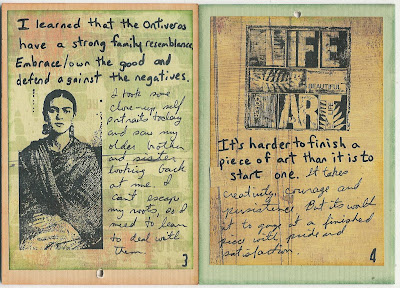 I learned that the Ontiveros
have a strong family resemblance.
Embrace/own the good and
defend against the negatives.
I took some
close-up self
portraits today
and saw my
older brother
and sister
looking back
at me. I
can't escape
my roots, so I
need to learn
to deal with
them.
3
LIFE
BEAUTIFUL
ART
It's harder to finish a
piece of art than it is to
start one. It takes
creativity, courage and
persistence. But its worth
it to gaze at a finished
piece with pride and
satisfaction.
4